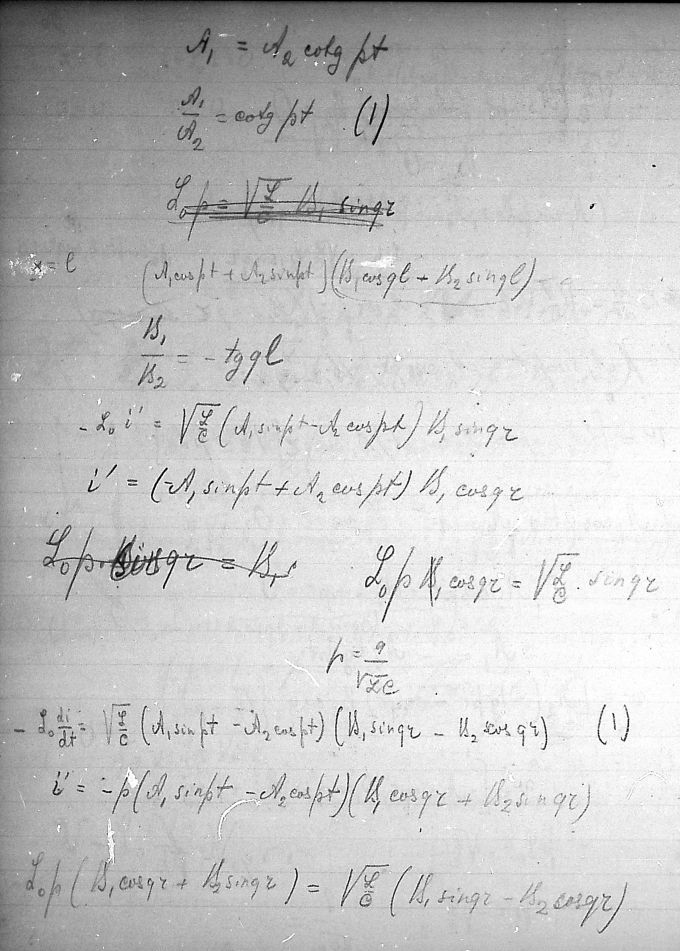 A₁ = A₂ cotg pt
A₁/A₂ = cotg pt (1)
L₀p = √(L/C) B₁ sin qr
x = l (A₁ cos pt + A₂ sin pt)(B₁ cos ql + B₂ sin ql)
B₁/B₂ = - tg ql
- L₀ i' = √(L/C) (A₁ sin pt - A₂ cos pt) B₁ sin qr
i' = (-A₁ sin pt + A₂ cos pt) B₁ cos qr
L₀p cos qr = B₁ L₀p B₁ cos qr = √(L/C) · sin qr
p = q/√(LC)
- L₀ di/dt = √(L/C) (A₁ sin pt - A₂ cos pt) (B₁ sin qr - B₂ cos qr) (1)
i' = -p (A₁ sin pt - A₂ cos pt) (B₁ cos qr + B₂ sin qr)
L₀p (B₁ cos qr + B₂ sin qr) = √(L/C) (B₁ sin qr - B₂ cos qr)